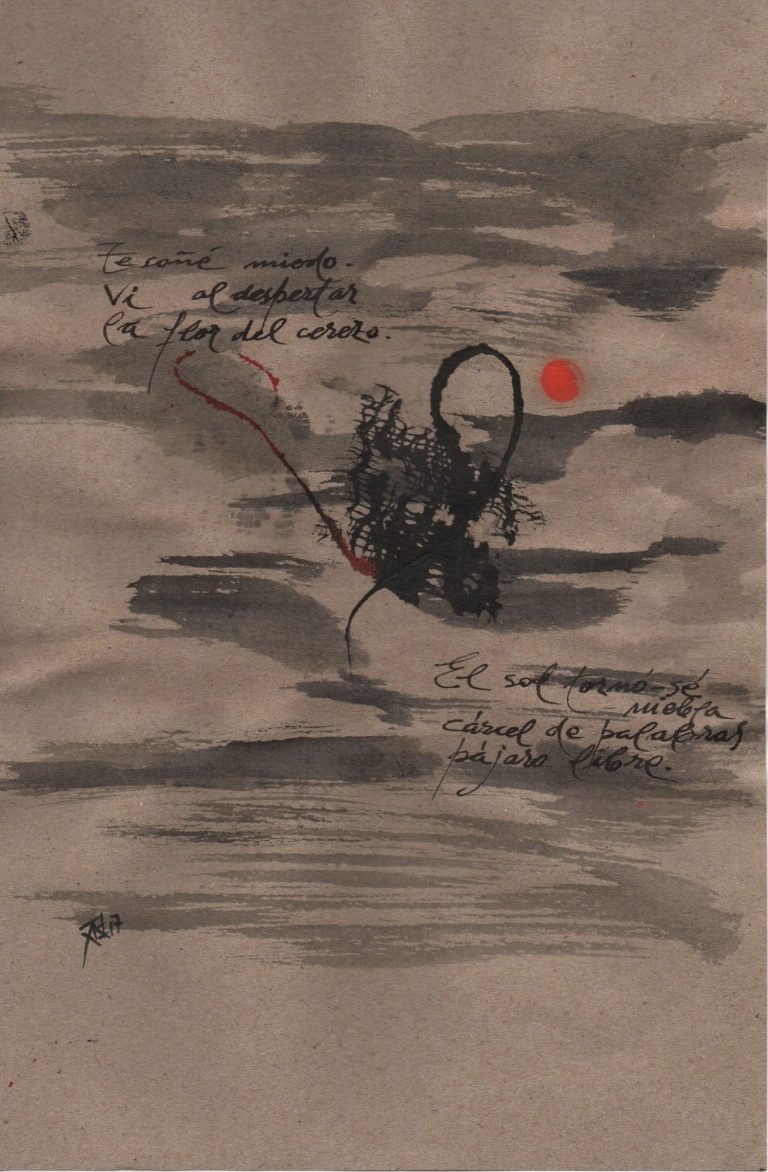 te soñé miedo.
Vi al despertar
la flor del cerezo.
El sol tornó sé
niebla
cárcel de palabras
pájaro libre.